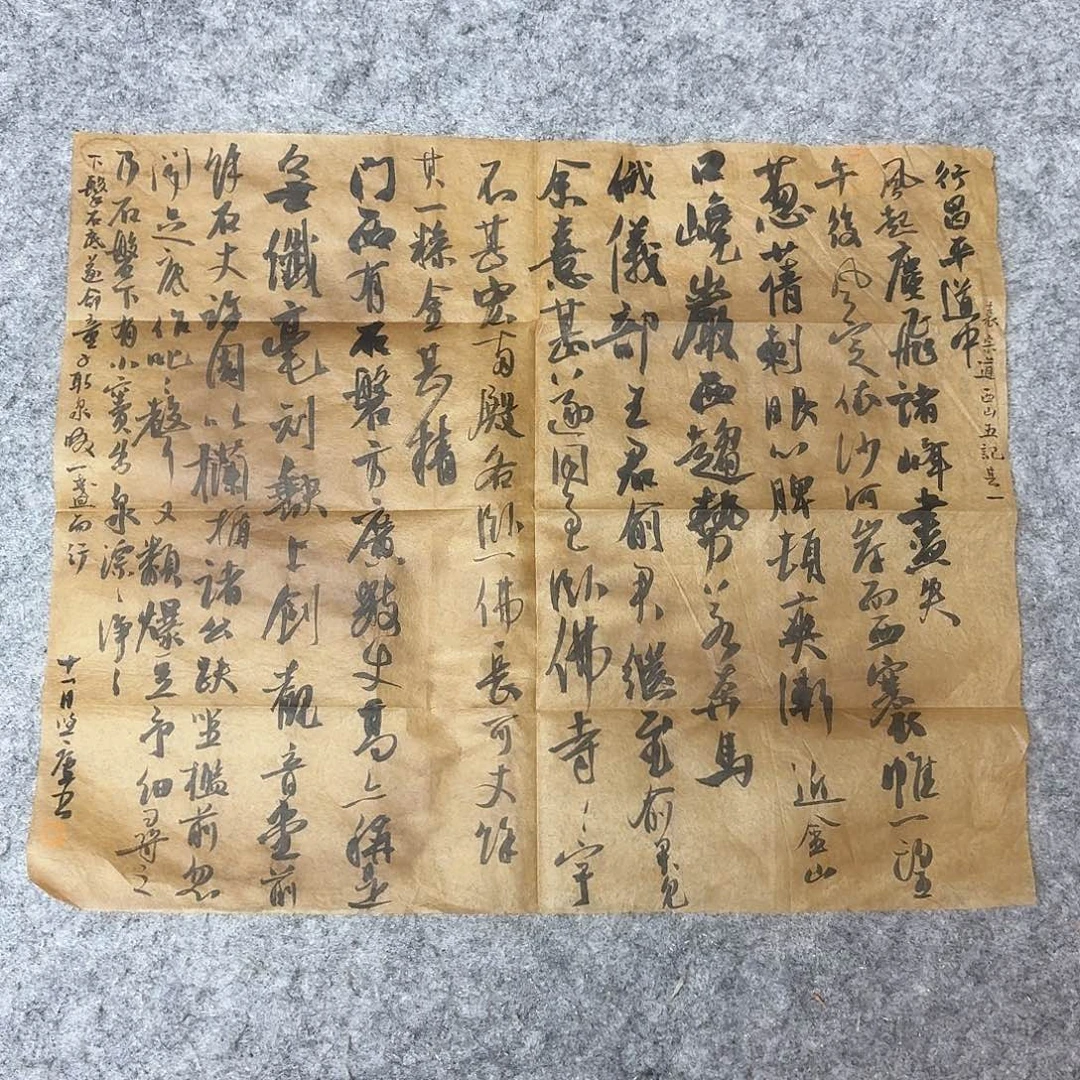 行昌平道中
袁宗道西山五記其一
風起塵飛諸峰盡失
午後風定依沙河岸而西褰帷一望
蔥蒨刺眼心脾頓爽漸近金山
口嶢巖西趨勢若奔馬
俄儀部王君俞君繼至俞君見
余喜甚遂同至卧佛寺〻宇
不甚宏兩殿各卧一佛長可丈餘
其一糝金甚精
門西有石磐方廣數丈高亦稱是
無纖毫刻缺上創觀音堂前
餘石丈許周以欄楯諸公趺坐檻前忽
聞足底作叱〻聲又類爆豆予細尋之
乃石磐下有小竇出泉漂〻淨〻
下磬石底遂命童子取泉啜一盞而行
十一月